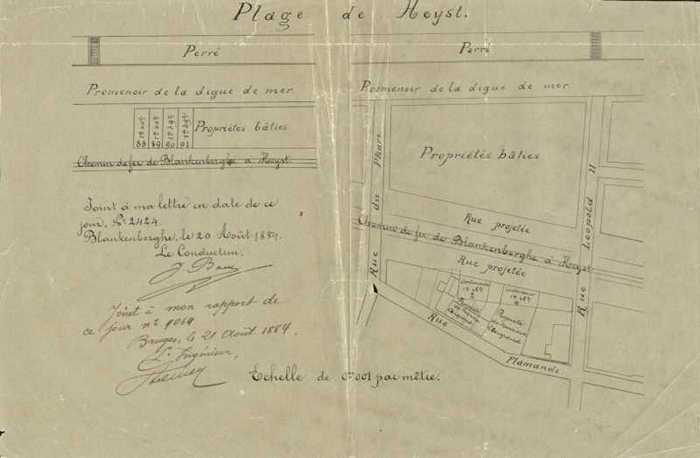 Plage de Heyst.
Perré
Perré
Promenoir de la digue de mer
Promenoir de la digue de mer
88
89
90
91
Propriétés bâties
Propriétés bâties
Chemin de fer de Blankenberghe à Heyst
Rue du Phare
Rue Léopold II
Rue projetée
Chemin de fer de Blankenberghe à Heyst
Rue projetée
Rue Flamande
Joint à ma lettre en date de ce
jour, N° 2424.
Blankenberghe, le 20 Août 1884.
Le Conducteur,
Joint à mon rapport de
ce jour n° 9069
Bruges, le 21 août 1884.
L'Ingénieur,
Echelle de 0m001 par mètre.